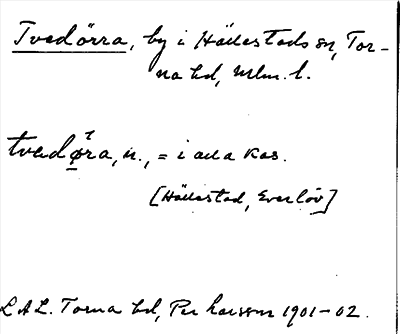 Tvedörra, by i Hällestads sn, Tor-
na hd, Mlm. l.
tvedø̄ra, n., = i alla kas.
[Hällestad, Everlöv]
LAL. Torna hd, Per Larsson 1901-02.